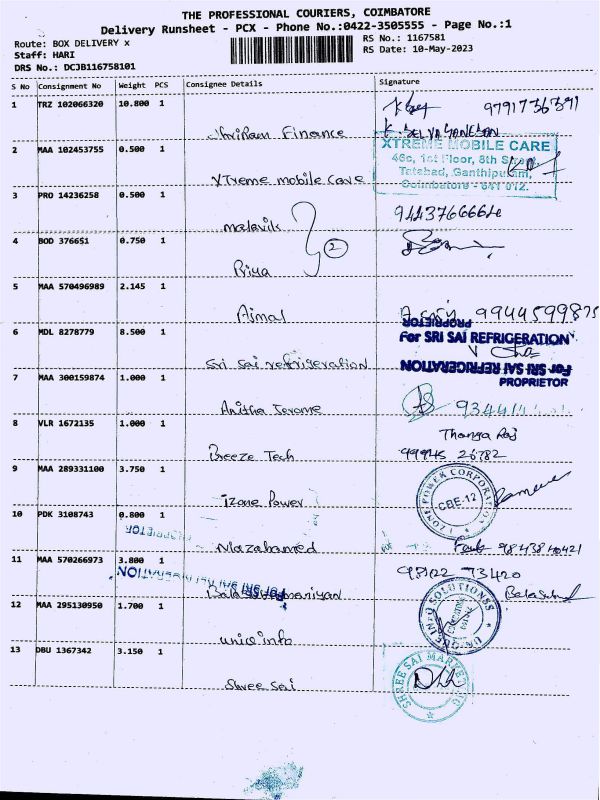 THE PROFESSIONAL COURIERS, COIMBATORE
Delivery Runsheet - PCX - Phone No.:0422-3505555 - Page No.:1
Route: BOX DELIVERY x
RS No.: 1167581
Staff: HARI
RS Date: 10-May-2023
DRS No.: DCJB116758101
S No Consignment No Weight PCS Consignee Details Signature
1 TRZ 102066320 10.800 1
Finance
K. SELVAGANESAN
2 MAA 102453755 0.500 1
XTreme mobile cave
XTREME MOBILE CARE
46c, 1st Floor, 8th Street,
Tatabad, Ganthipuram,
Coimbatore - 641 012.
3 PRO 14236258 0.500 1
4 BOD 376651 0.750 1
2
Priya
5 MAA 570496989 2.145 1
Ajmal
9944599875
PROPRIETOR
6 MDL 8278779 8.500 1
Sri Sai refrigeration
For SRI SAI REFRIGERATION
For SRI SAI REFRIGERATION
PROPRIETOR
7 MAA 300159874 1.000 1
Anitha Jerome
8 VLR 1672135 1.000 1
Breeze Tech
Thanga Raj
99945 26782
9 MAA 289331100 3.750 1
izone Power
I ZONE POWER CORPORATION
CBE-12
10 PDK 3108743 0.800 1
PROPRIETOR
Nazahamed
11 MAA 570266973 3.800 1
98122 73420
12 MAA 295130950 1.700 1
unique info
13 DBU 1367342 3.150 1
Shree Sai